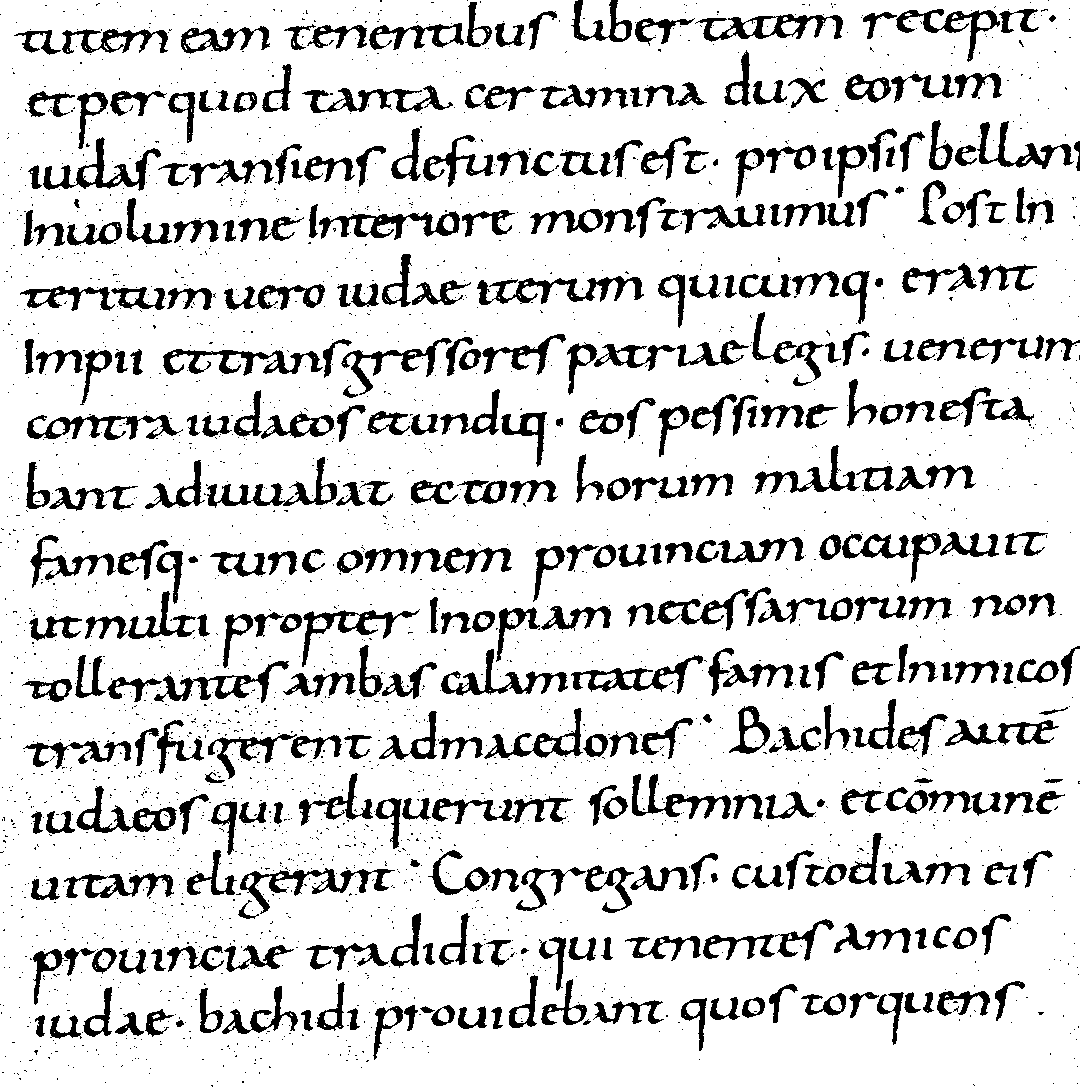 tutem eam tenentibus libertatem recepit·
et per quod tanta certamina dux eorum
iudas transiens defunctus est· pro ipsis bellans
In uolumine Interiore monstrauimus· Post In
teritum uero iudae iterum quicumq· erant
Impii et transgressores patriae legis· uenerum
contra iudaeos et undiq· eos pessime honesta
bant adiuuabat ectom horum malitiam
famesq· tunc omnem prouinciam occupauit
ut multi propter Inopiam necessariorum non
tollerantes ambas calamitates famis et Inimicos
transfugerent ad macedones· Bachides autē
iudaeos qui reliquerunt sollemnia· et cōmunē
uitam eligerant· Congregans· custodiam eis
prouinciae tradidit· qui tenentes amicos
iudae· bachidi prouidebant quos torquens